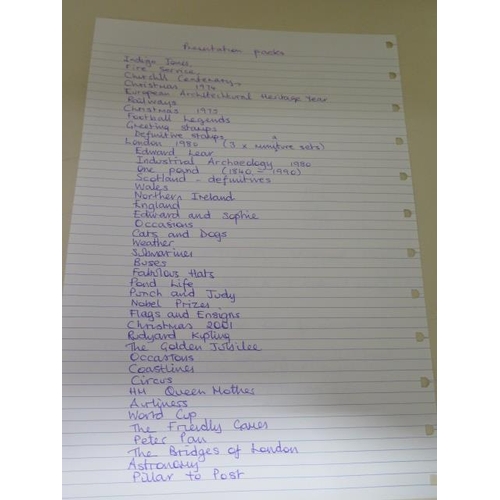 Presentation packs
Indigo Jones
Fire Service
Churchill Centenary
Christmas 1974
European Architectural Heritage Year
Railways
Christmas 1975
Football Legends
Greeting stamps
Definitive stamps
London 1980 (3 x miniture sets)
Edward Lear
Industrial Archaeology 1980
One pound (1840 - 1990)
Scotland - definitives
Wales
Northern Ireland
England
Edward and Sophie
Occasions
Cats and Dogs
Weather
Submarines
Buses
Fabulous Hats
Pond Life
Punch and Judy
Nobel Prizes
Flags and Ensigns
Christmas 2001
Rudyard Kipling
The Golden Jubilee
Occasions
Coastlines
Circus
HM Queen Mother
Airliness
World Cup
The Friendly Games
Peter Pan
The Bridges of London
Astronomy
Pillar to Post